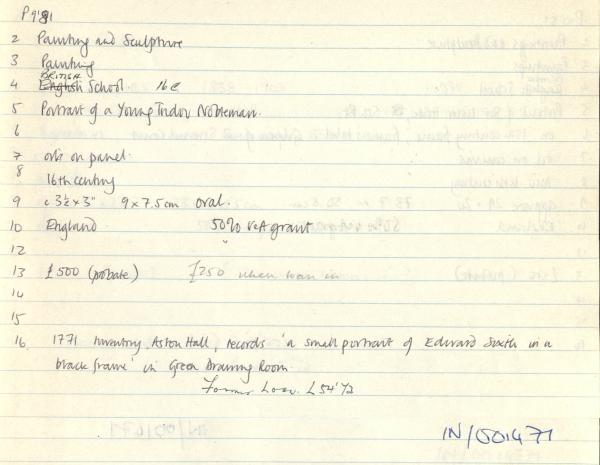 P9'81
2 Painting and Sculpture
3 Painting
BRITISH
4 English School 16c
5 Portrait of a Young Tudor Nobleman.
6
7 oils on panel.
8 16th century
9 c 3½ x 3" 9 x 7.5 cm oval.
10 England 50% V&A grant
12
13 £500 (probate) £250 when loan in
14
15
16 1771 Inventory, Aston Hall, records 'a small portrait of Edward Sixth in a
black frame' in Green Drawing Room.
Former Loan. L54'72
IN/001471